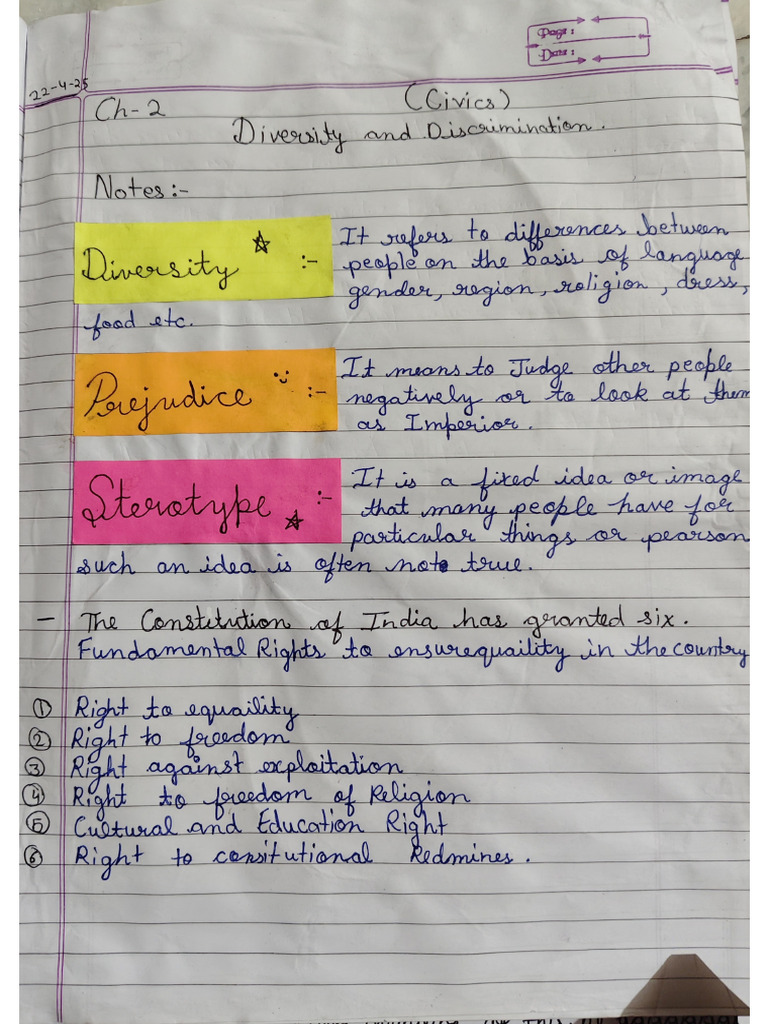 Page:
Date:
22-4-25
(Civics)
Ch-2
Diversity and Discrimination.
Notes:-
Diversity :- It refers to differences between
people on the basis of language
gender, region, religion, dress,
food etc.
Prejudice :- It means to Judge other people
negatively or to look at them
as Imperior.
Sterotype :- It is a fixed idea or image
that many people have for
particular things or pearson
such an idea is often not true.
- The Constitution of India has granted six.
Fundamental Rights to ensure equaility in the country
① Right to equaility
② Right to freedom
③ Right against exploitation
④ Right to freedom of Religion
⑤ Cultural and Education Right
⑥ Right to consitutional Redmines.